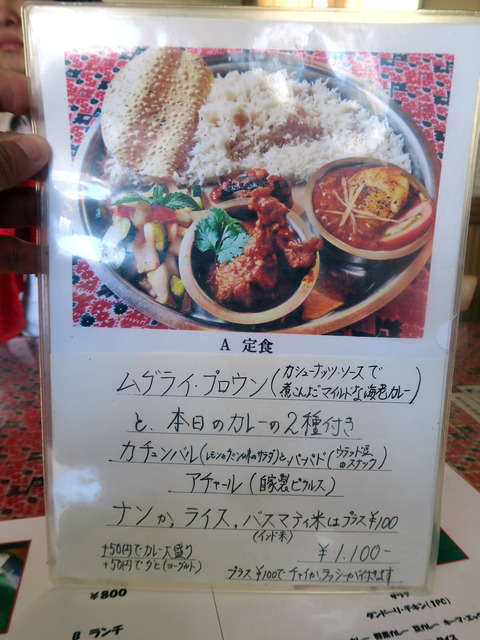 A 定食
ムグライ・プロウン(カシューナッツ・ソースで
煮こんだマイルドな海老カレー)
と、本日のカレーの2種付き
カチュンバル(レモンとクミン味のサラダ)と、パーパド(ウラッド豆
のスナック)
アチャール(自家製ピクルス)
ナンか、ライス、バスマティ米はプラス¥100
(インド米)
+50円でカレー大盛り
¥1.100-
+50円でダヒ(ヨーグルト)
プラス¥100でチャイか、ラッシーが付きます
¥800
B ランチ
サラダ
タンドーリ・チキン(1PC)